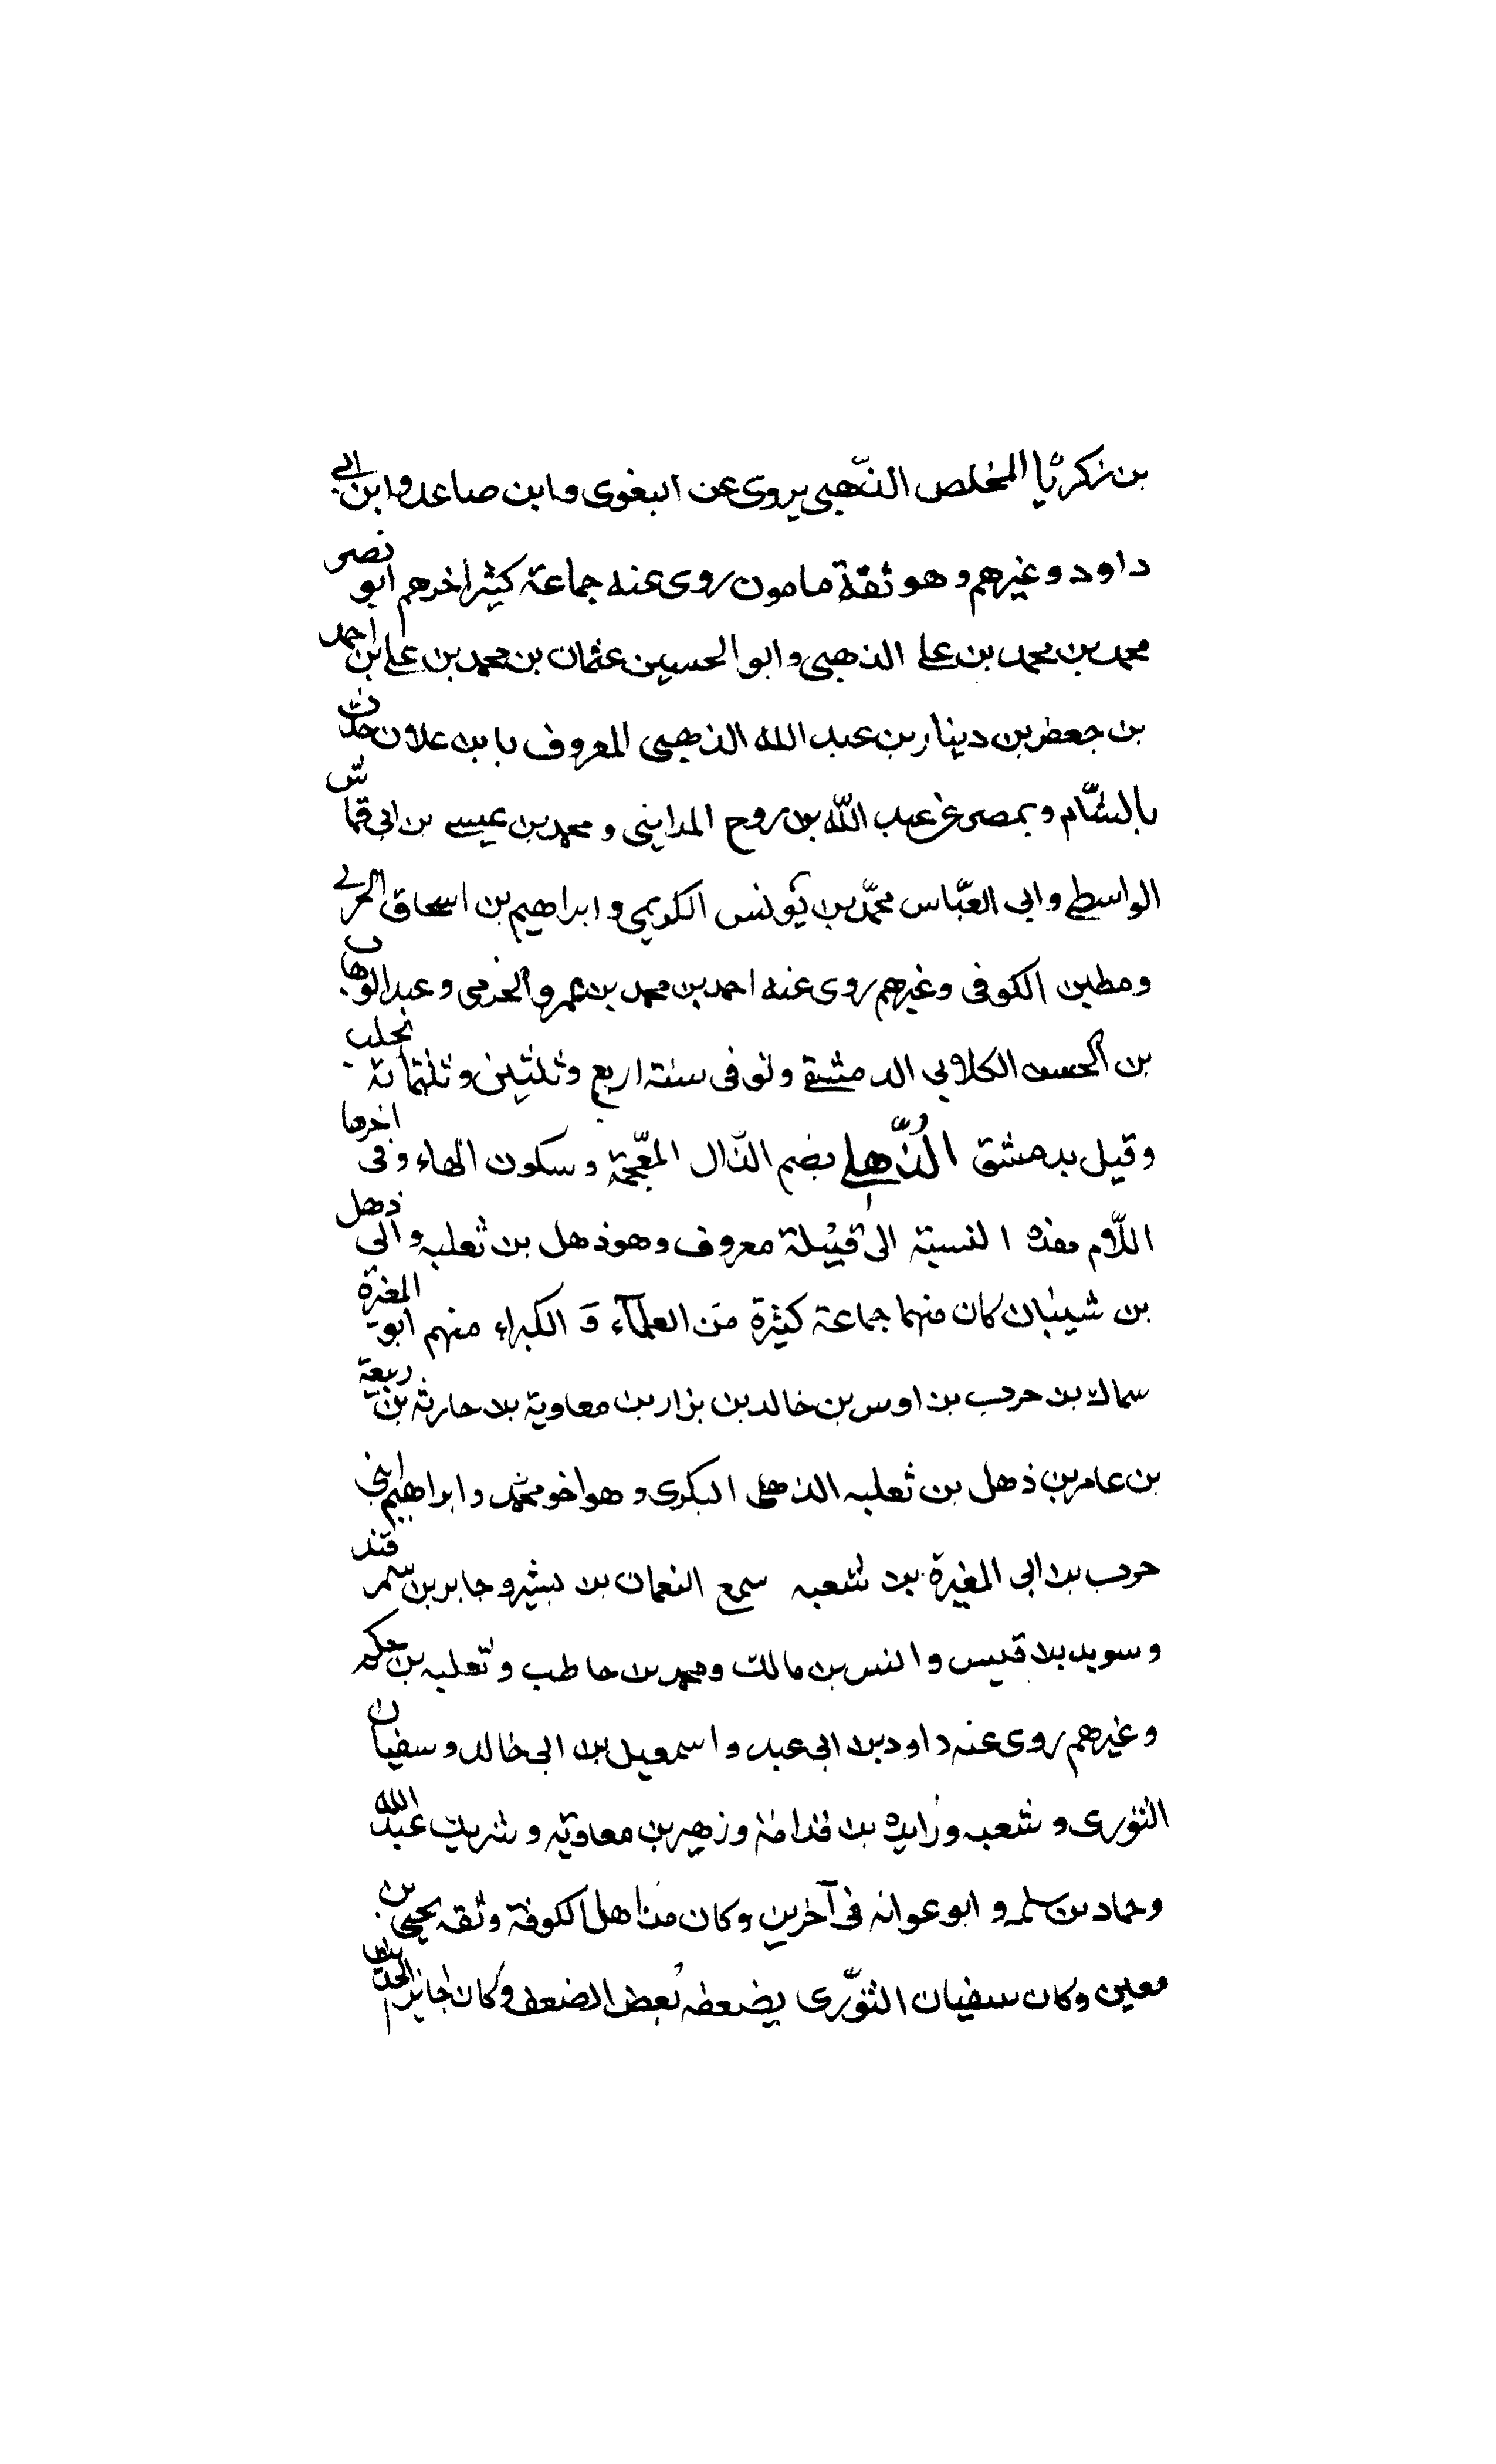 بن زكريّا المخلص الذّهبى يروى عن البغوى وابن صاعد وابن ابي
داود وغيرهم وهو ثقة مامون روى عنه جماعة كثيرا خرهم ابو نصر
محمد بن محمد بن على الذهبى وابو الحسين عثمان بن محمد بن على بن احمد
بن جعفر بن دينار بن عبد الله الذهبى المعروف بابن علان حدّث
بالشّام وبمصر عن عبد اللّه بن روح المداينى ومحمد بن عيسے بن ابى قماش
الواسطے وابى العبّاس محمّد بن يونس الكديمى وابراهيم بن اسحاق الحربے
ومطين الكوفى وغيرهم روى عنه احمد بن محمد بن عمرو الخرمى وعبد الوهاب
بن الحسن الكلابي الدمشقے وتوفى سنة اربع وثلثين وثلثمائة بحلب
وقيل بدمشق الذُّهلے بضم الذّال المعّجمة وسكون الهاء وفى اخرها
اللّام هذه النسبة الى قبيلة معروف وهو ذهل بن ثعلبه والى ذهل
بن شيبان كان منهما جماعة كثيرة من العلمآء وَ الكبراء منهم ابو المغيرة
سماك بن حرب بن اوس بن خالد بن نزار بن معاوية بن حارثه بن ربيعة
بن عامر بن ذهل بن ثعلبه الذهلى البكرى وهو اخو محمّد وابراهيم ابنى
حرب بن ابى المغيرة بن شعبه سمع النعمان بن بشير وجابر بن سمر
وسويد بن قيس وانس بن مالك ومحمد بن حاطب وثعلبه بن حكم
وغيرهم روى عنه داود بن ابى عبد واسمعيل بن ابى خالد وسفيان
الثورى وشعبه وزايده بن قدامة وزهير بن معاوية وشريك عبد الله
وحماد بن سلمه وابو عوانه فى آخرين وكان من اهل الكوفة وثقه يحيى بن
معين وكان سفيان الثوّرى يضعفه بعض الضعف وكان جايز الحديث